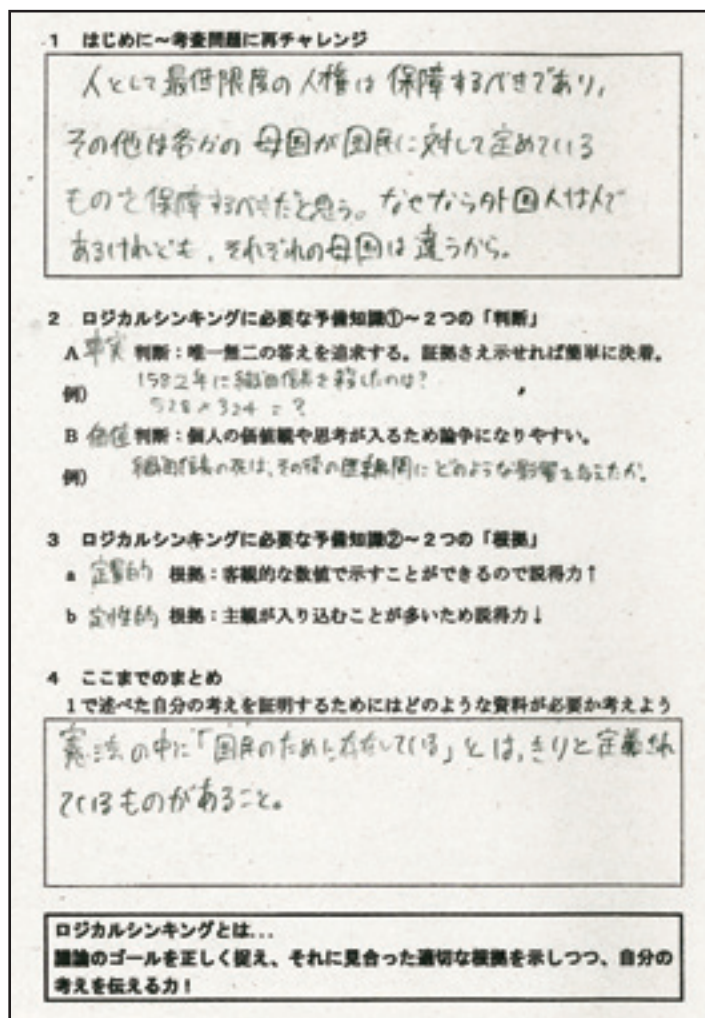 1 はじめに～考査問題に再チャレンジ
人として最低限度の人権は保障するべきであり、
その他は各々の母国が国民に対して定めている
ものを保障するべきだと思う。なぜなら外国人は人で
あるけれども、それぞれの母国は違うから。
2 ロジカルシンキングに必要な予備知識①～2つの「判断」
A 事実 判断：唯一無二の答えを追求する。証拠さえ示せれば簡単に決着。
1582年に織田信長を殺したのは？
例)
528×324=?
B 価値 判断：個人の価値観や思考が入るため論争になりやすい。
例) 織田信長の死は、その後の にどのような影響を与えたか。
3 ロジカルシンキングに必要な予備知識②～2つの「根拠」
a 定量的 根拠：客観的な数値で示すことができるので説得力↑
b 定性的 根拠：主観が入り込むことが多いため説得力↓
4 ここまでのまとめ
1で述べた自分の考えを証明するためにはどのような資料が必要か考えよう
憲法の中に「国民のために存在している」とはっきりと定義され
ているものがあること。
ロジカルシンキングとは...
議論のゴールを正しく捉え、それに見合った適切な根拠を示しつつ、自分の
考えを伝える力！